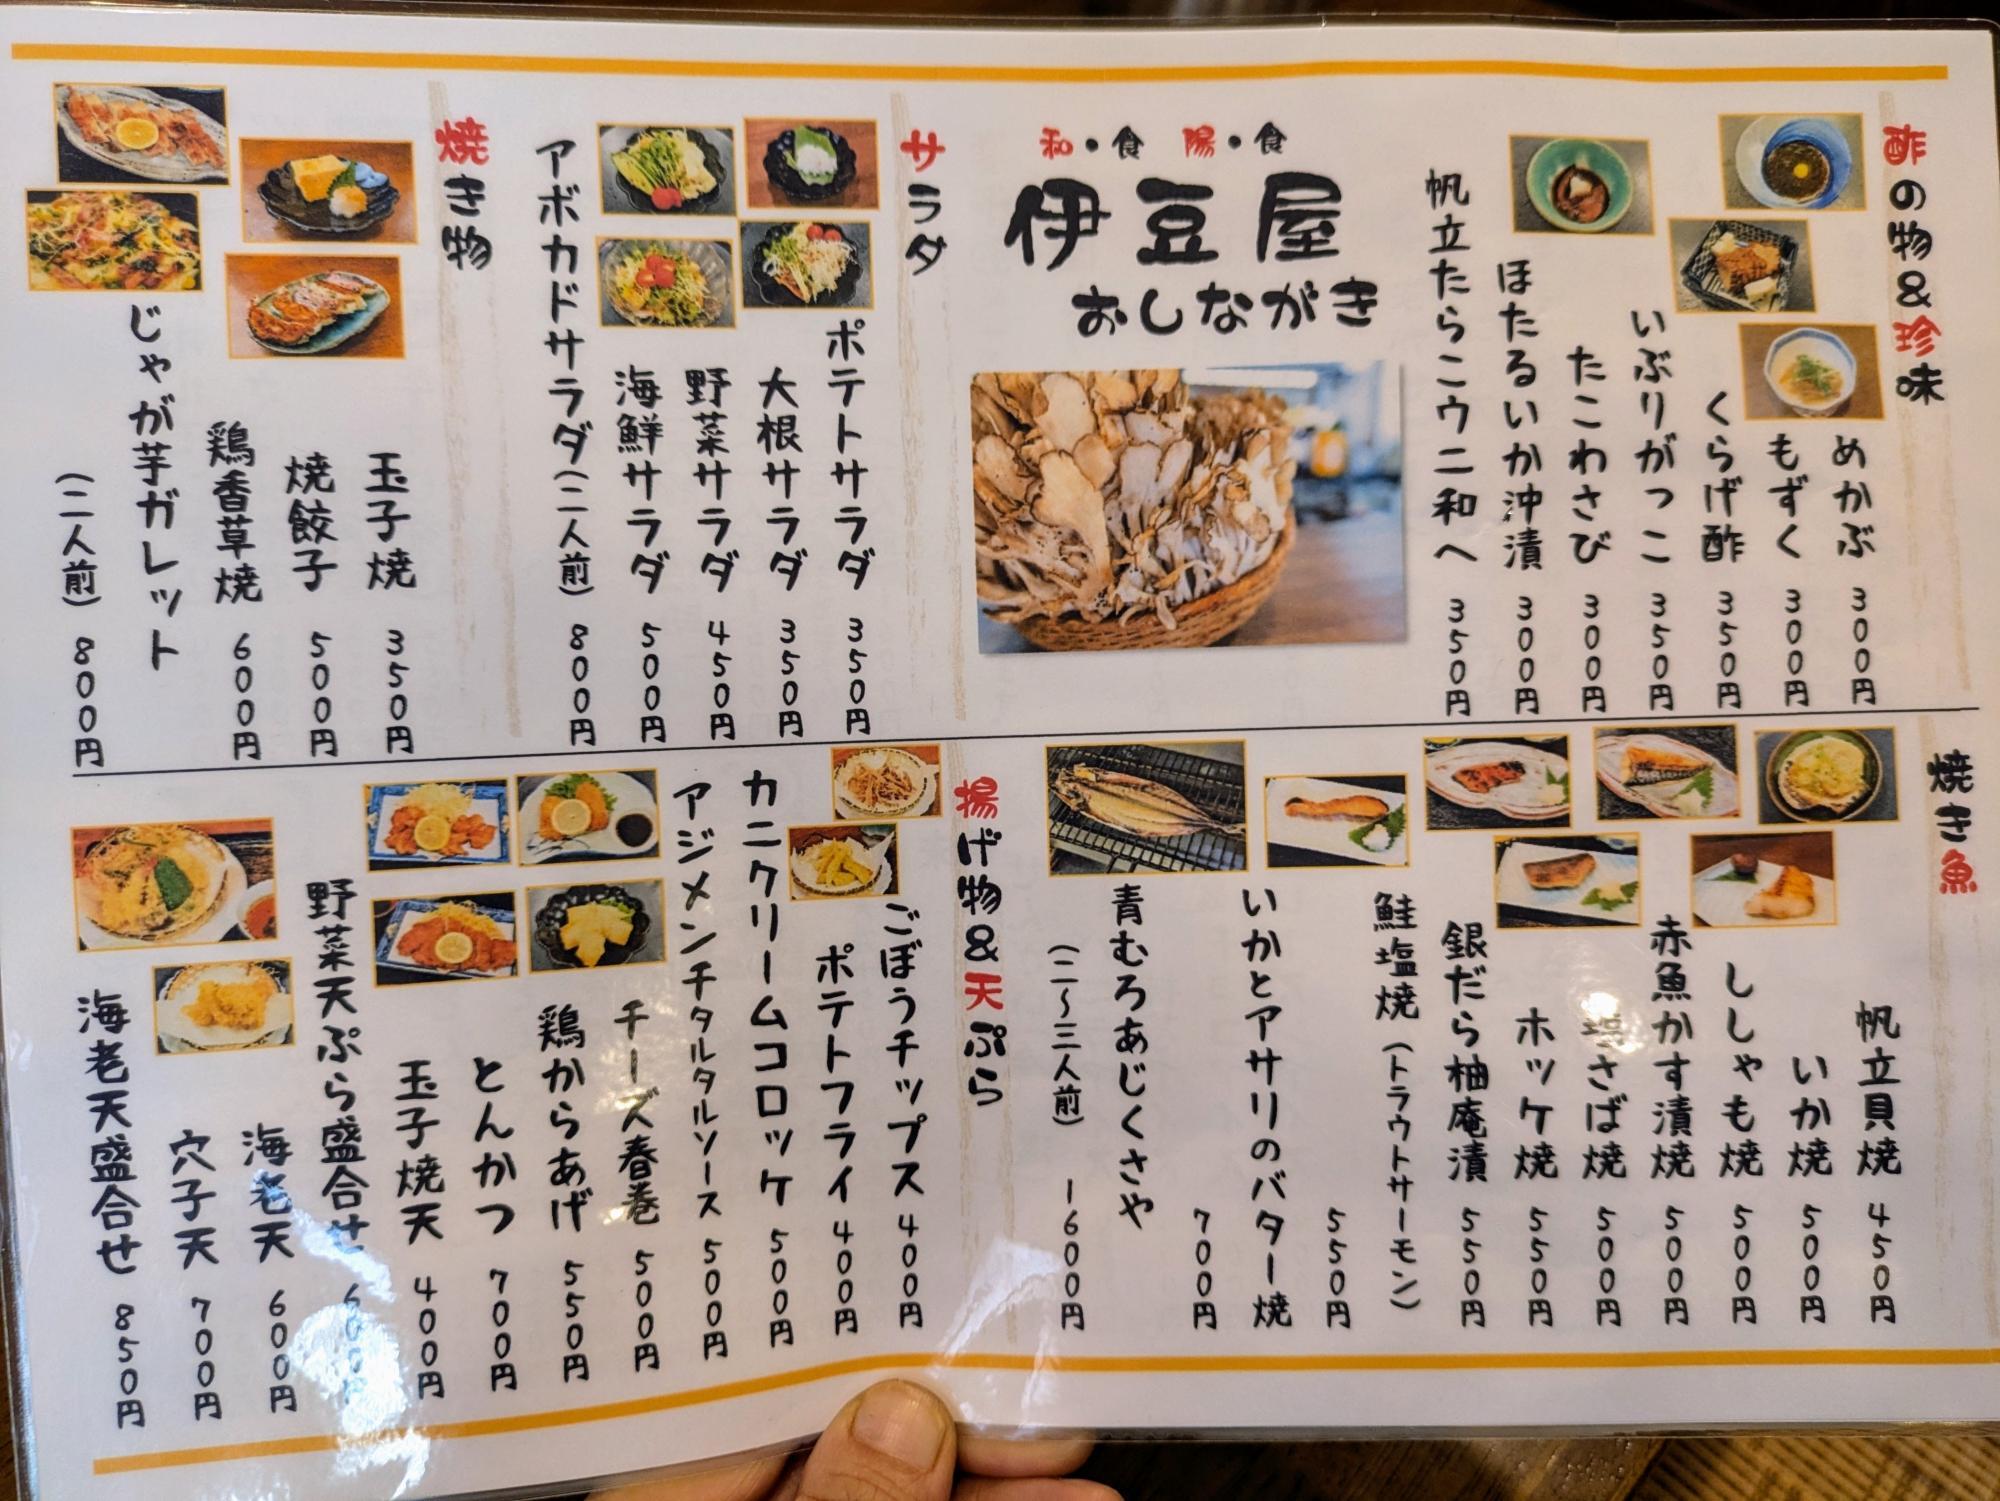 和・食 陽・食
伊豆屋
おしながき
酢の物&珍味
めかぶ 300円
もずく 300円
くらげ酢 350円
いぶりがっこ 350円
たこわさび 300円
ほたるいか沖漬 300円
帆立たらこウニ和へ 350円
サラダ
ポテトサラダ 350円
大根サラダ 350円
野菜サラダ 450円
海鮮サラダ 500円
アボカドサラダ(二人前) 800円
焼き物
玉子焼 350円
焼餃子 500円
鶏香草焼 600円
じゃが芋ガレット
(二人前) 800円
焼き魚
帆立貝焼 450円
いか焼 500円
ししゃも焼 500円
赤魚かす漬焼 500円
塩さば焼 500円
ホッケ焼 550円
銀だら柚庵漬 550円
鮭塩焼(トラウトサーモン)
550円
いかとアサリのバター焼
700円
青むろあじくさや
(二〜三人前) 1600円
揚げ物&天ぷら
ごぼうチップス 400円
ポテトフライ 400円
カニクリームコロッケ 500円
アジメンチタルタルソース 500円
チーズ春巻 500円
鶏からあげ 550円
とんかつ 700円
玉子焼天 400円
野菜天ぷら盛合せ 600円
海老天 600円
穴子天 700円
海老天盛合せ 850円